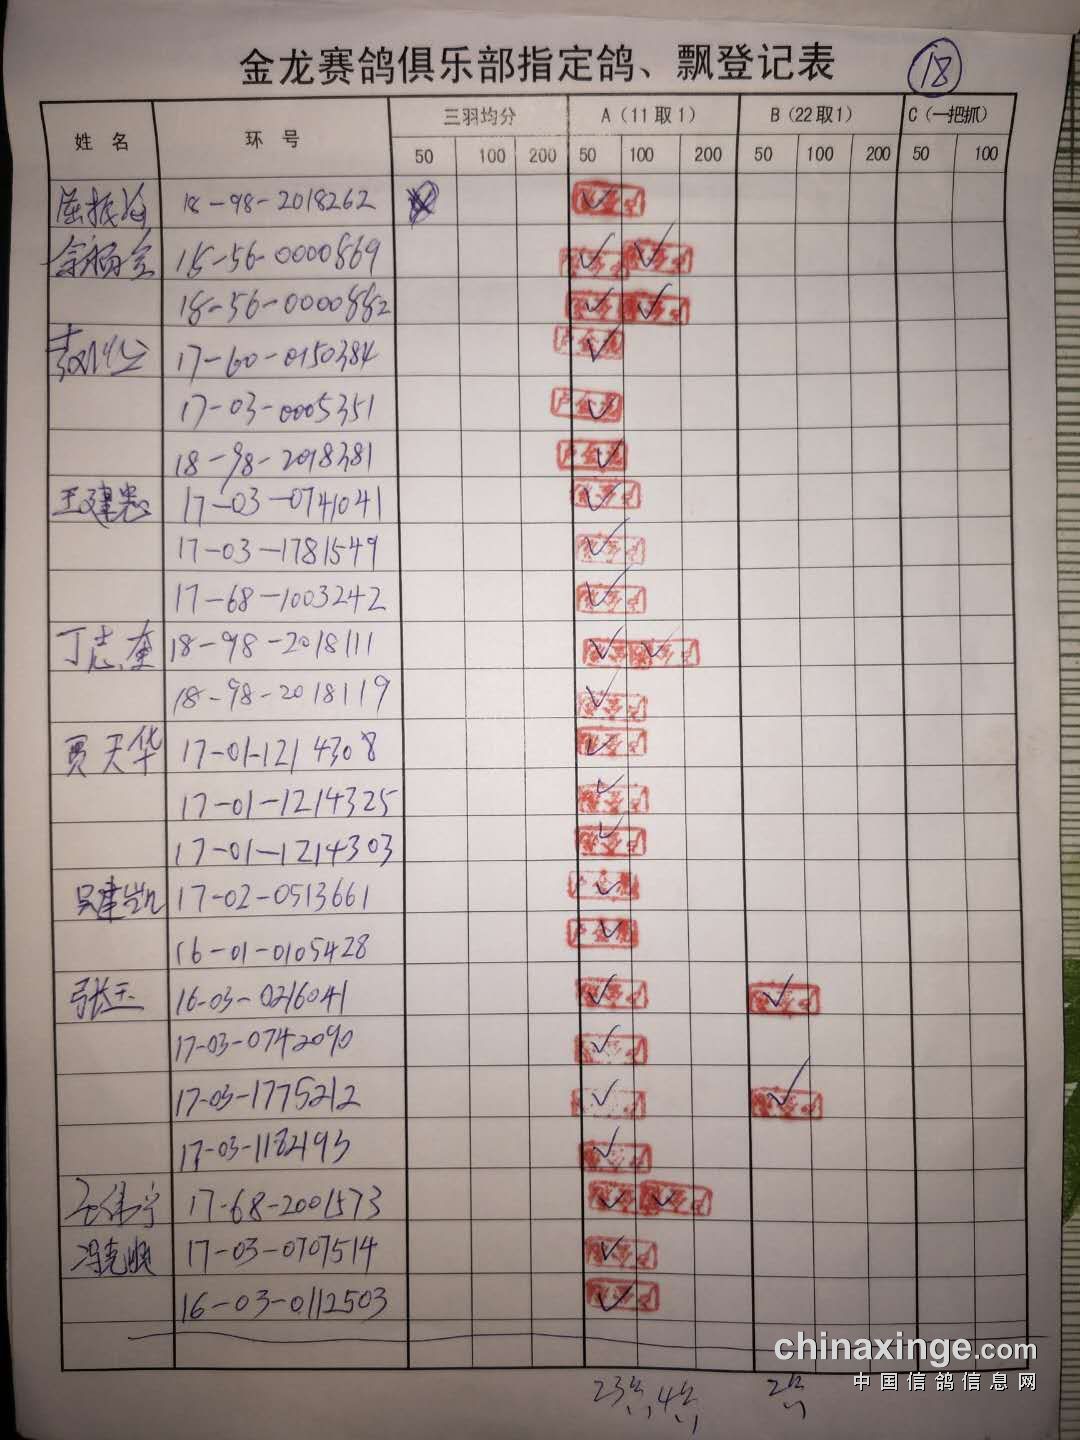 金龙赛鸽俱乐部指定鸽、飘登记表 18
姓名 环号 三羽均分 A（11取1） B（22取1） C（一把抓）
50 100 200 50 100 200 50 100 200 50 100
18-98-2018262 ✓
15-56-0000869 ✓ ✓
18-56-0000882 ✓ ✓
17-60-0150384 ✓
17-03-0005351 ✓
18-98-2018381 ✓
王建忠 17-03-0741041 ✓
17-03-1781549 ✓
17-68-1003242 ✓
丁志奎 18-98-2018111 ✓ ✓
18-98-2018119 ✓
贾天华 17-01-1214308 ✓
17-01-1214325 ✓
17-01-1214303 ✓
吴建凯 17-02-0513661 ✓
16-01-0105428 ✓
张玉 16-03-0216041 ✓ ✓
17-03-0742090 ✓
17-03-1775212 ✓ ✓
17-03-1182193 ✓
17-68-2001573 ✓ ✓
冯克 17-03-0707514 ✓
16-03-0112503 ✓
chinaxinge.com
中国信鸽信息网
23 4 2